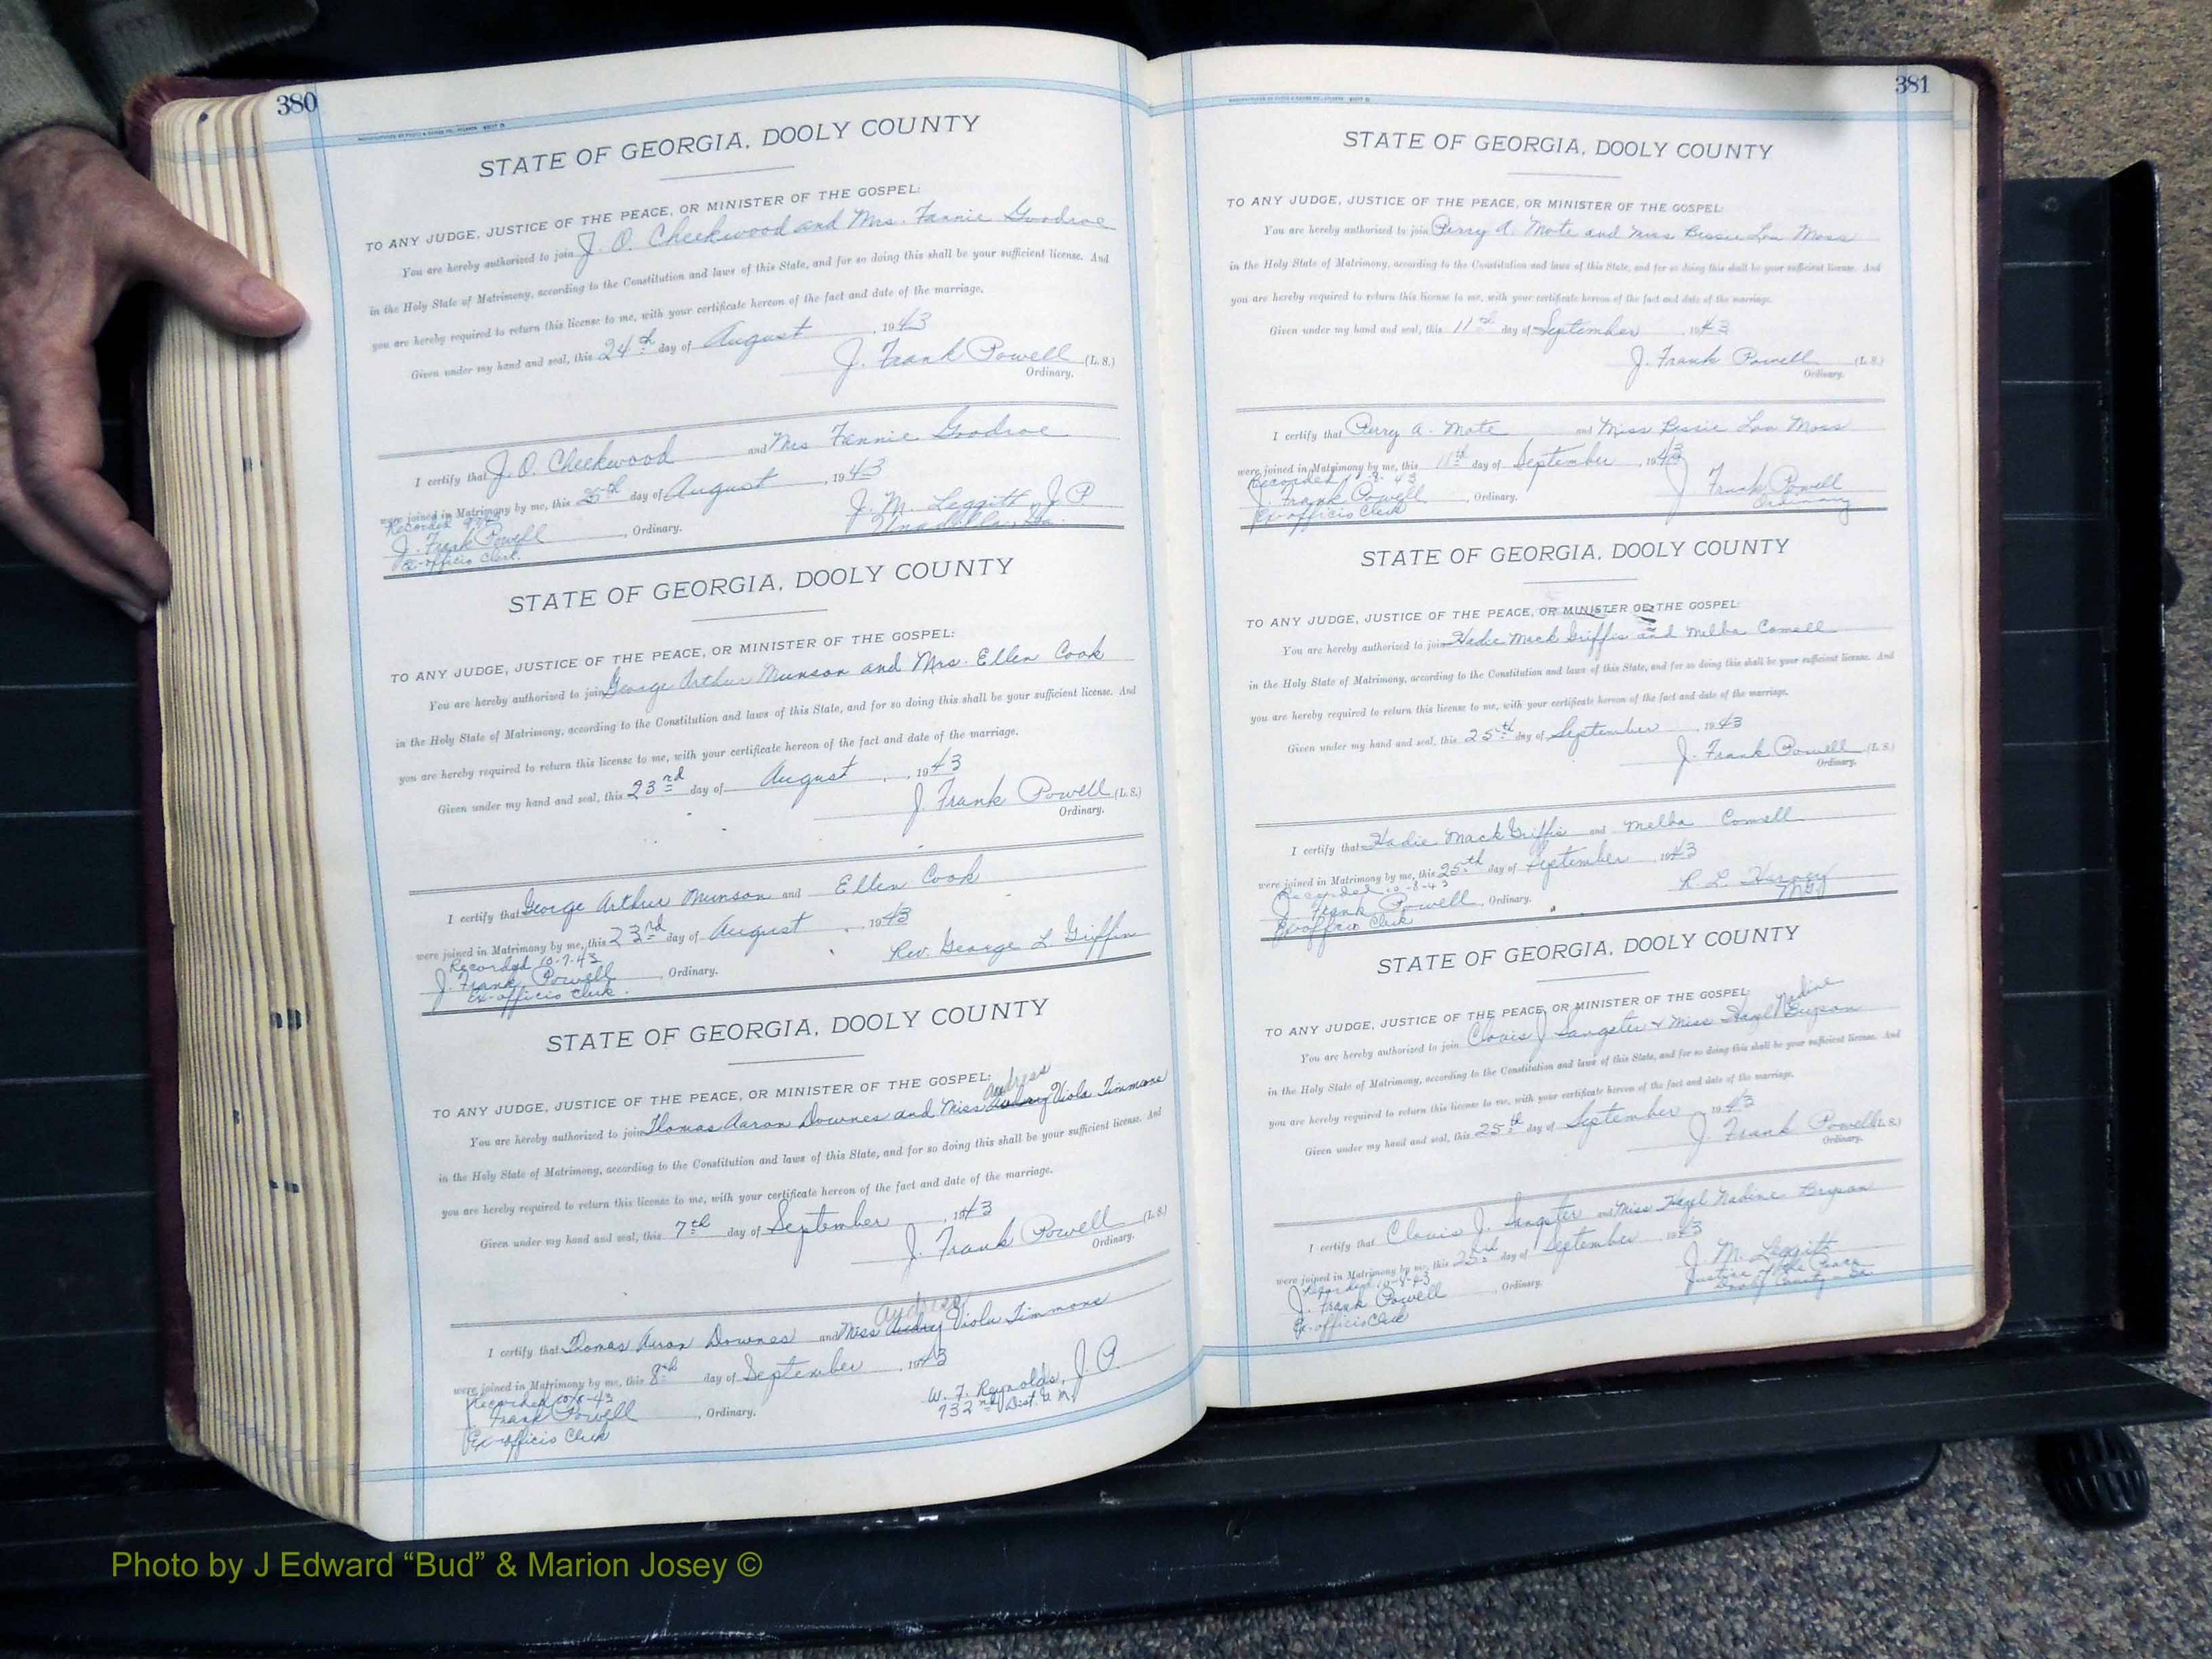 380
STATE OF GEORGIA, DOOLY COUNTY
TO ANY JUDGE, JUSTICE OF THE PEACE, OR MINISTER OF THE GOSPEL:
You are hereby authorized to join J. O. Cheekwood and Mrs. Fannie Goodroe
in the Holy State of Matrimony, according to the Constitution and laws of this State, and for so doing this shall be your sufficient license. And
you are hereby required to return this license to me, with your certificate hereon of the fact and date of the marriage.
Given under my hand and seal, this 24th day of August, 1943
J. Frank Powell (L. S.)
Ordinary.
I certify that J. O. Cheekwood and Mrs Fannie Goodroe
were joined in Matrimony by me, this 25th day of August, 1943
Recorded
J. M. Leggitt, J. P.
Unadilla, Ga.
J. Frank Powell, Ordinary.
Ex-officio Clerk.
STATE OF GEORGIA, DOOLY COUNTY
TO ANY JUDGE, JUSTICE OF THE PEACE, OR MINISTER OF THE GOSPEL:
You are hereby authorized to join George Arthur Munson and Mrs. Ellen Cook
in the Holy State of Matrimony, according to the Constitution and laws of this State, and for so doing this shall be your sufficient license. And
you are hereby required to return this license to me, with your certificate hereon of the fact and date of the marriage.
Given under my hand and seal, this 23rd day of August, 1943
J. Frank Powell (L. S.)
Ordinary.
I certify that George Arthur Munson and Ellen Cook
were joined in Matrimony by me, this 23rd day of August, 1943
Recorded 10-7-43
Rev. George L. Griffin
J. Frank Powell, Ordinary.
Ex-officio Clerk.
STATE OF GEORGIA, DOOLY COUNTY
TO ANY JUDGE, JUSTICE OF THE PEACE, OR MINISTER OF THE GOSPEL:
Audress
You are hereby authorized to join Thomas Aaron Downes and Miss Audrey Viola Timmons
in the Holy State of Matrimony, according to the Constitution and laws of this State, and for so doing this shall be your sufficient license. And
you are hereby required to return this license to me, with your certificate hereon of the fact and date of the marriage.
Given under my hand and seal, this 7th day of September, 1943
J. Frank Powell (L. S.)
Ordinary.
Audress
I certify that Thomas Aaron Downes and Miss Audrey Viola Timmons
were joined in Matrimony by me, this 8th day of September, 1943
Recorded
W. F. Reynolds, J. P.
732nd Dist. G. M.
J. Frank Powell, Ordinary.
Ex-officio Clerk
381
STATE OF GEORGIA, DOOLY COUNTY
TO ANY JUDGE, JUSTICE OF THE PEACE, OR MINISTER OF THE GOSPEL:
You are hereby authorized to join Perry A. Mote and Miss Bessie Lou Moss
in the Holy State of Matrimony, according to the Constitution and laws of this State, and for so doing this shall be your sufficient license. And
you are hereby required to return this license to me, with your certificate hereon of the fact and date of the marriage.
Given under my hand and seal, this 11th day of September, 1943
J. Frank Powell (L. S.)
Ordinary.
I certify that Perry A. Mote and Miss Bessie Lou Moss
were joined in Matrimony by me, this 11th day of September, 1943
Recorded
J. Frank Powell
Ordinary
J. Frank Powell, Ordinary.
Ex-officio Clerk
STATE OF GEORGIA, DOOLY COUNTY
TO ANY JUDGE, JUSTICE OF THE PEACE, OR MINISTER OF THE GOSPEL:
You are hereby authorized to join Hadie Mack Griffis and Melba Comell
in the Holy State of Matrimony, according to the Constitution and laws of this State, and for so doing this shall be your sufficient license. And
you are hereby required to return this license to me, with your certificate hereon of the fact and date of the marriage.
Given under my hand and seal, this 25th day of September, 1943
J. Frank Powell (L. S.)
Ordinary.
I certify that Hadie Mack Griffis and Melba Comell
were joined in Matrimony by me, this 25th day of September, 1943
Recorded 10-8-43
R. L. Harvey
M.G.
J. Frank Powell, Ordinary.
Ex officio Clerk
STATE OF GEORGIA, DOOLY COUNTY
TO ANY JUDGE, JUSTICE OF THE PEACE, OR MINISTER OF THE GOSPEL:
Nadine
You are hereby authorized to join Clovis J. Sangster & Miss Hazel Bryson
in the Holy State of Matrimony, according to the Constitution and laws of this State, and for so doing this shall be your sufficient license. And
you are hereby required to return this license to me, with your certificate hereon of the fact and date of the marriage.
Given under my hand and seal, this 25th day of September, 1943
J. Frank Powell (L. S.)
Ordinary.
I certify that Clovis J. Sangster and Miss Hazel Nadine Bryson
were joined in Matrimony by me, this day of September, 1943
Recorded 10-8-43
J. M. Leggitt
Justice of the Peace
Dooly County - Ga.
J. Frank Powell, Ordinary.
Ex-officio Clerk
Photo by J Edward “Bud” & Marion Josey ©